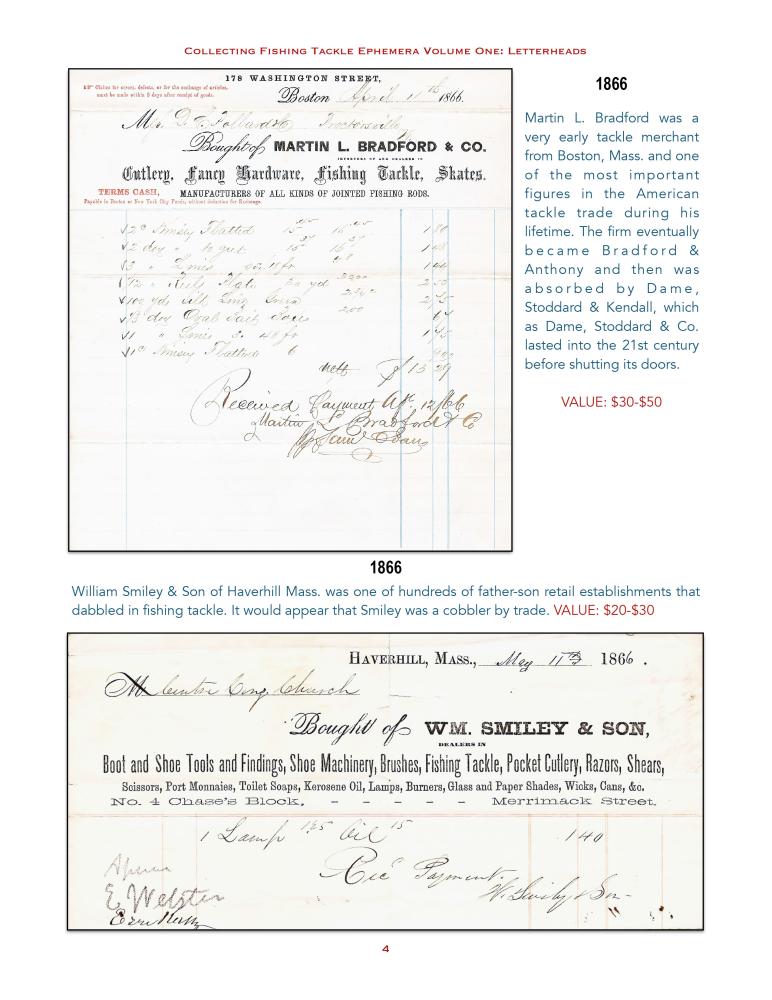 Collecting Fishing Tackle Ephemera Volume One: Letterheads
178 WASHINGTON STREET,
Claims for errors, defects, or for the exchange of articles,
must be made within 5 days after receipt of goods.
Boston April 11th 1866.
Bought of MARTIN L. BRADFORD & CO.
IMPORTERS OF AND DEALERS IN
Cutlery, Fancy Hardware, Fishing Tackle, Skates.
TERMS CASH, MANUFACTURERS OF ALL KINDS OF JOINTED FISHING RODS.
Payable in Boston or New York City Funds, without deduction for Exchange.
nett $13 29
Received Payment
Martin L Bradford & Co
1866
Martin L. Bradford was a
very early tackle merchant
from Boston, Mass. and one
of the most important
figures in the American
tackle trade during his
lifetime. The firm eventually
became Bradford &
Anthony and then was
absorbed by Dame,
Stoddard & Kendall, which
as Dame, Stoddard & Co.
lasted into the 21st century
before shutting its doors.
VALUE: $30-$50
1866
William Smiley & Son of Haverhill Mass. was one of hundreds of father-son retail establishments that
dabbled in fishing tackle. It would appear that Smiley was a cobbler by trade. VALUE: $20-$30
HAVERHILL, MASS., May 11th 1866.
Centre Cong Church
Bought of WM. SMILEY & SON,
DEALERS IN
Boot and Shoe Tools and Findings, Shoe Machinery, Brushes, Fishing Tackle, Pocket Cutlery, Razors, Shears,
Scissors, Port Monnaies, Toilet Soaps, Kerosene Oil, Lamps, Burners, Glass and Paper Shades, Wicks, Cans, &c.
No. 4 Chase's Block, - - - - - Merrimack Street.
1 Lamp 125 Oil 15 1 40
Rec Payment
E Webster
4